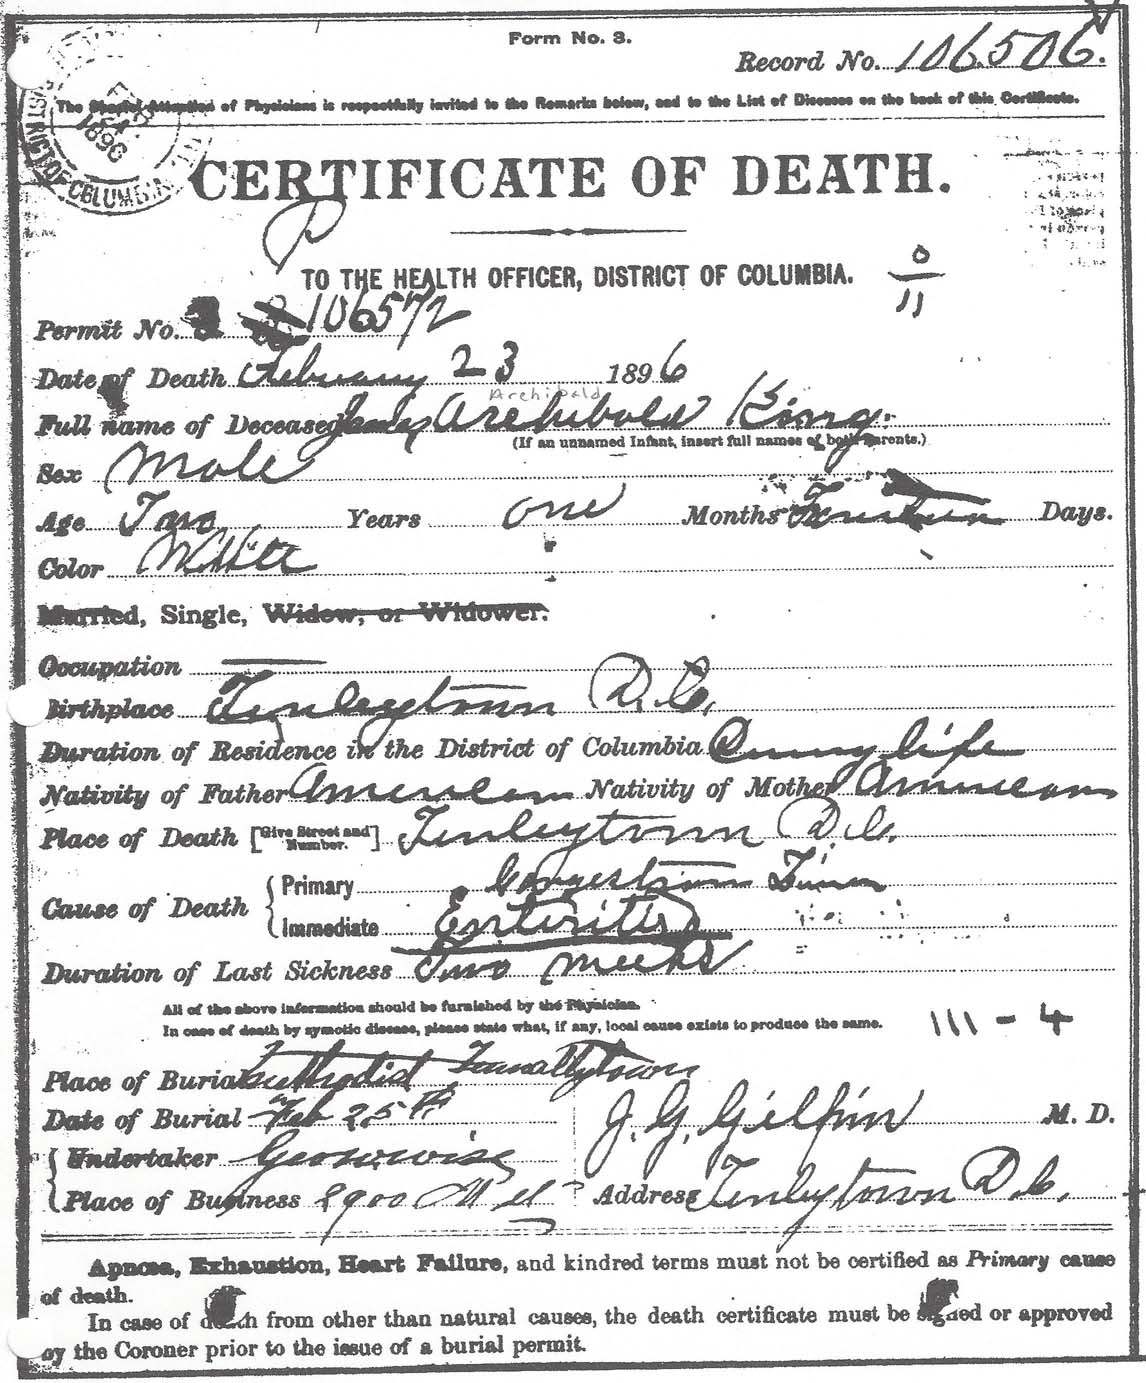 Form No. 3.
Record No. 106506.
DISTRICT OF COLUMBIA
1896
The Special Attention of Physicians is respectfully invited to the Remarks below, and to the List of Diseases on the back of this Certificate.
CERTIFICATE OF DEATH.
P
TO THE HEALTH OFFICER, DISTRICT OF COLUMBIA.
0
11
Permit No. 106572
Date of Death February 23 1896
Archibald
Full name of Deceased Archibold King.
(If an unnamed Infant, insert full names of both parents.)
Sex Male
Age Two Years one Months Days.
Color White
Married, Single, Widow, or Widower.
Occupation
Birthplace Tenleytown D.C.
Duration of Residence in the District of Columbia During life
Nativity of Father American Nativity of Mother American
Place of Death [Give Street and Number.] Tenleytown D.C.
Cause of Death Primary Congestion
Immediate Enteritis
Duration of Last Sickness Two weeks
All of the above information should be furnished by the Physician.
In case of death by zymotic disease, please state what, if any, local cause exists to produce the same.
111 - 4
Place of Burial Methodist Tennallytown
Date of Burial Feb 25th
J. G. Gilfin M. D.
Undertaker Geo. W. Wise
Place of Business 2900 M st
Address Tenleytown D.C.
Apnœa, Exhaustion, Heart Failure, and kindred terms must not be certified as Primary cause
of death.
In case of death from other than natural causes, the death certificate must be signed or approved
by the Coroner prior to the issue of a burial permit.